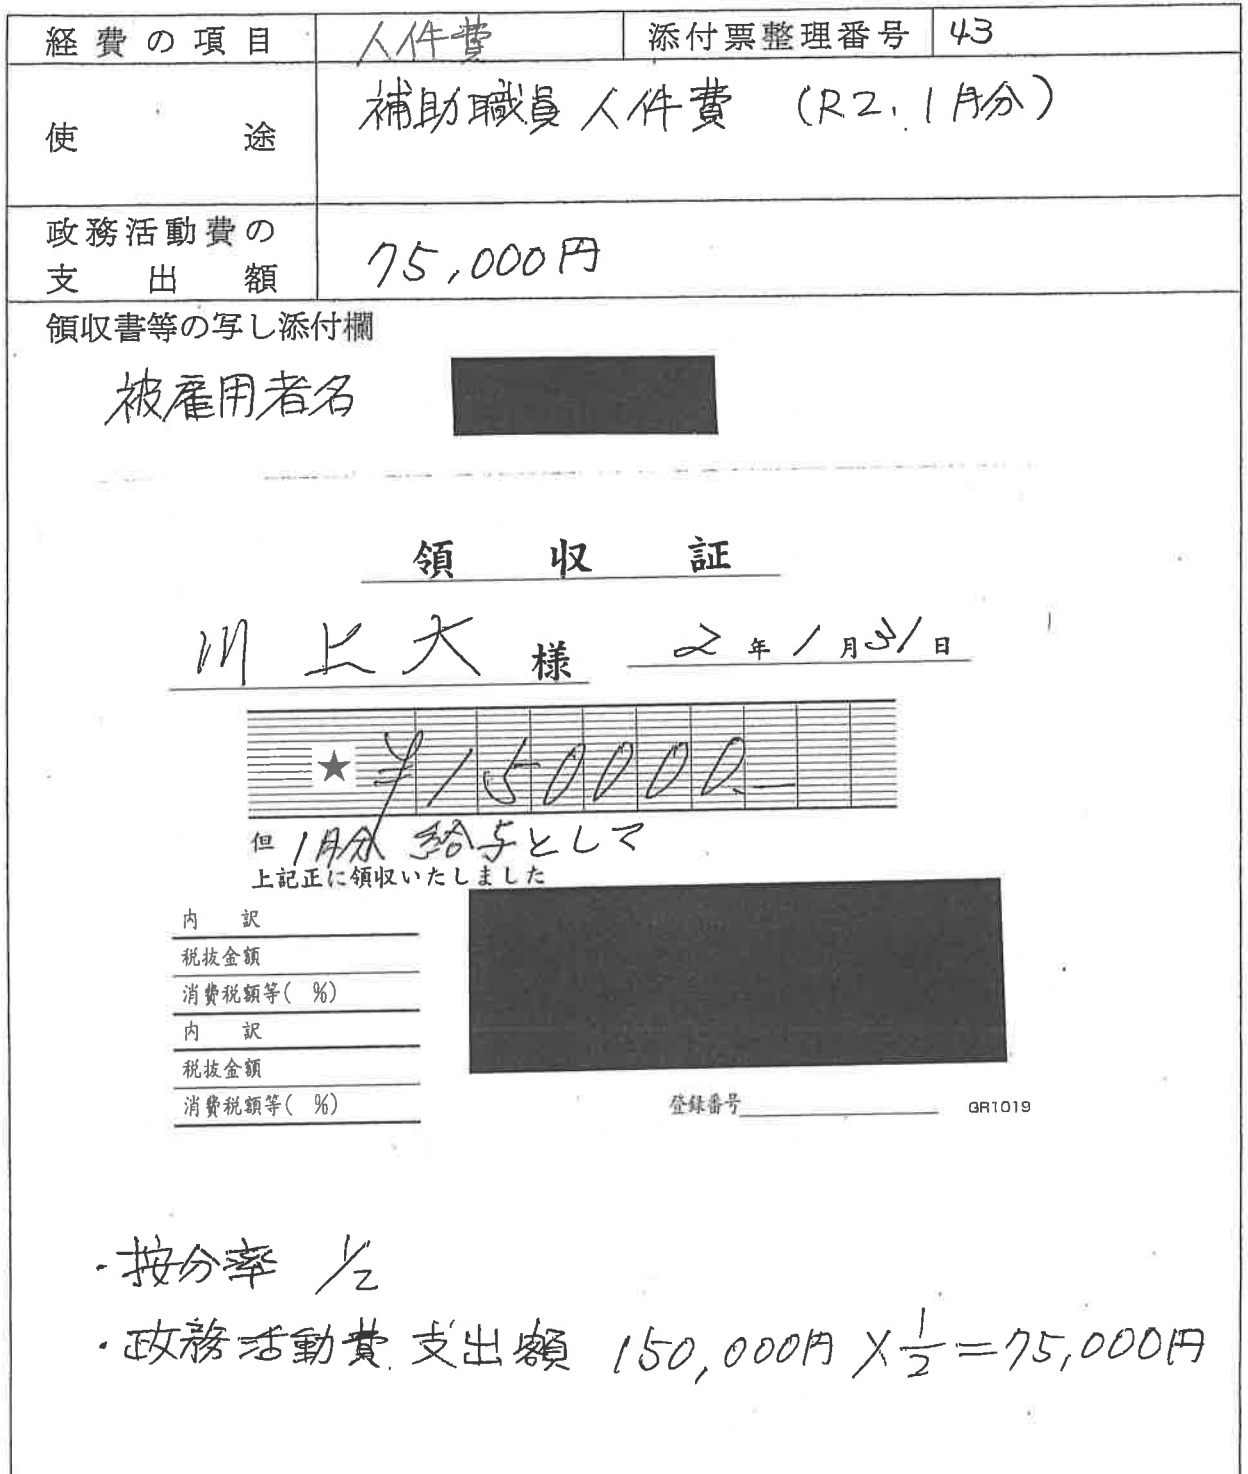 経費の項目 人件費 添付票整理番号 43
使途 補助職員人件費 (R2.1月分)
政務活動費の
支出額 75,000円
領収書等の写し添付欄
被雇用者名
領収証
川上大様 2年1月31日
★ ¥150000.—
但 1月分 給与として
上記正に領収いたしました
内訳
税抜金額
消費税額等( %)
内訳
税抜金額
消費税額等( %)
登録番号 GR1019
・按分率 1/2
・政務活動費支出額 150,000円×1/2=75,000円